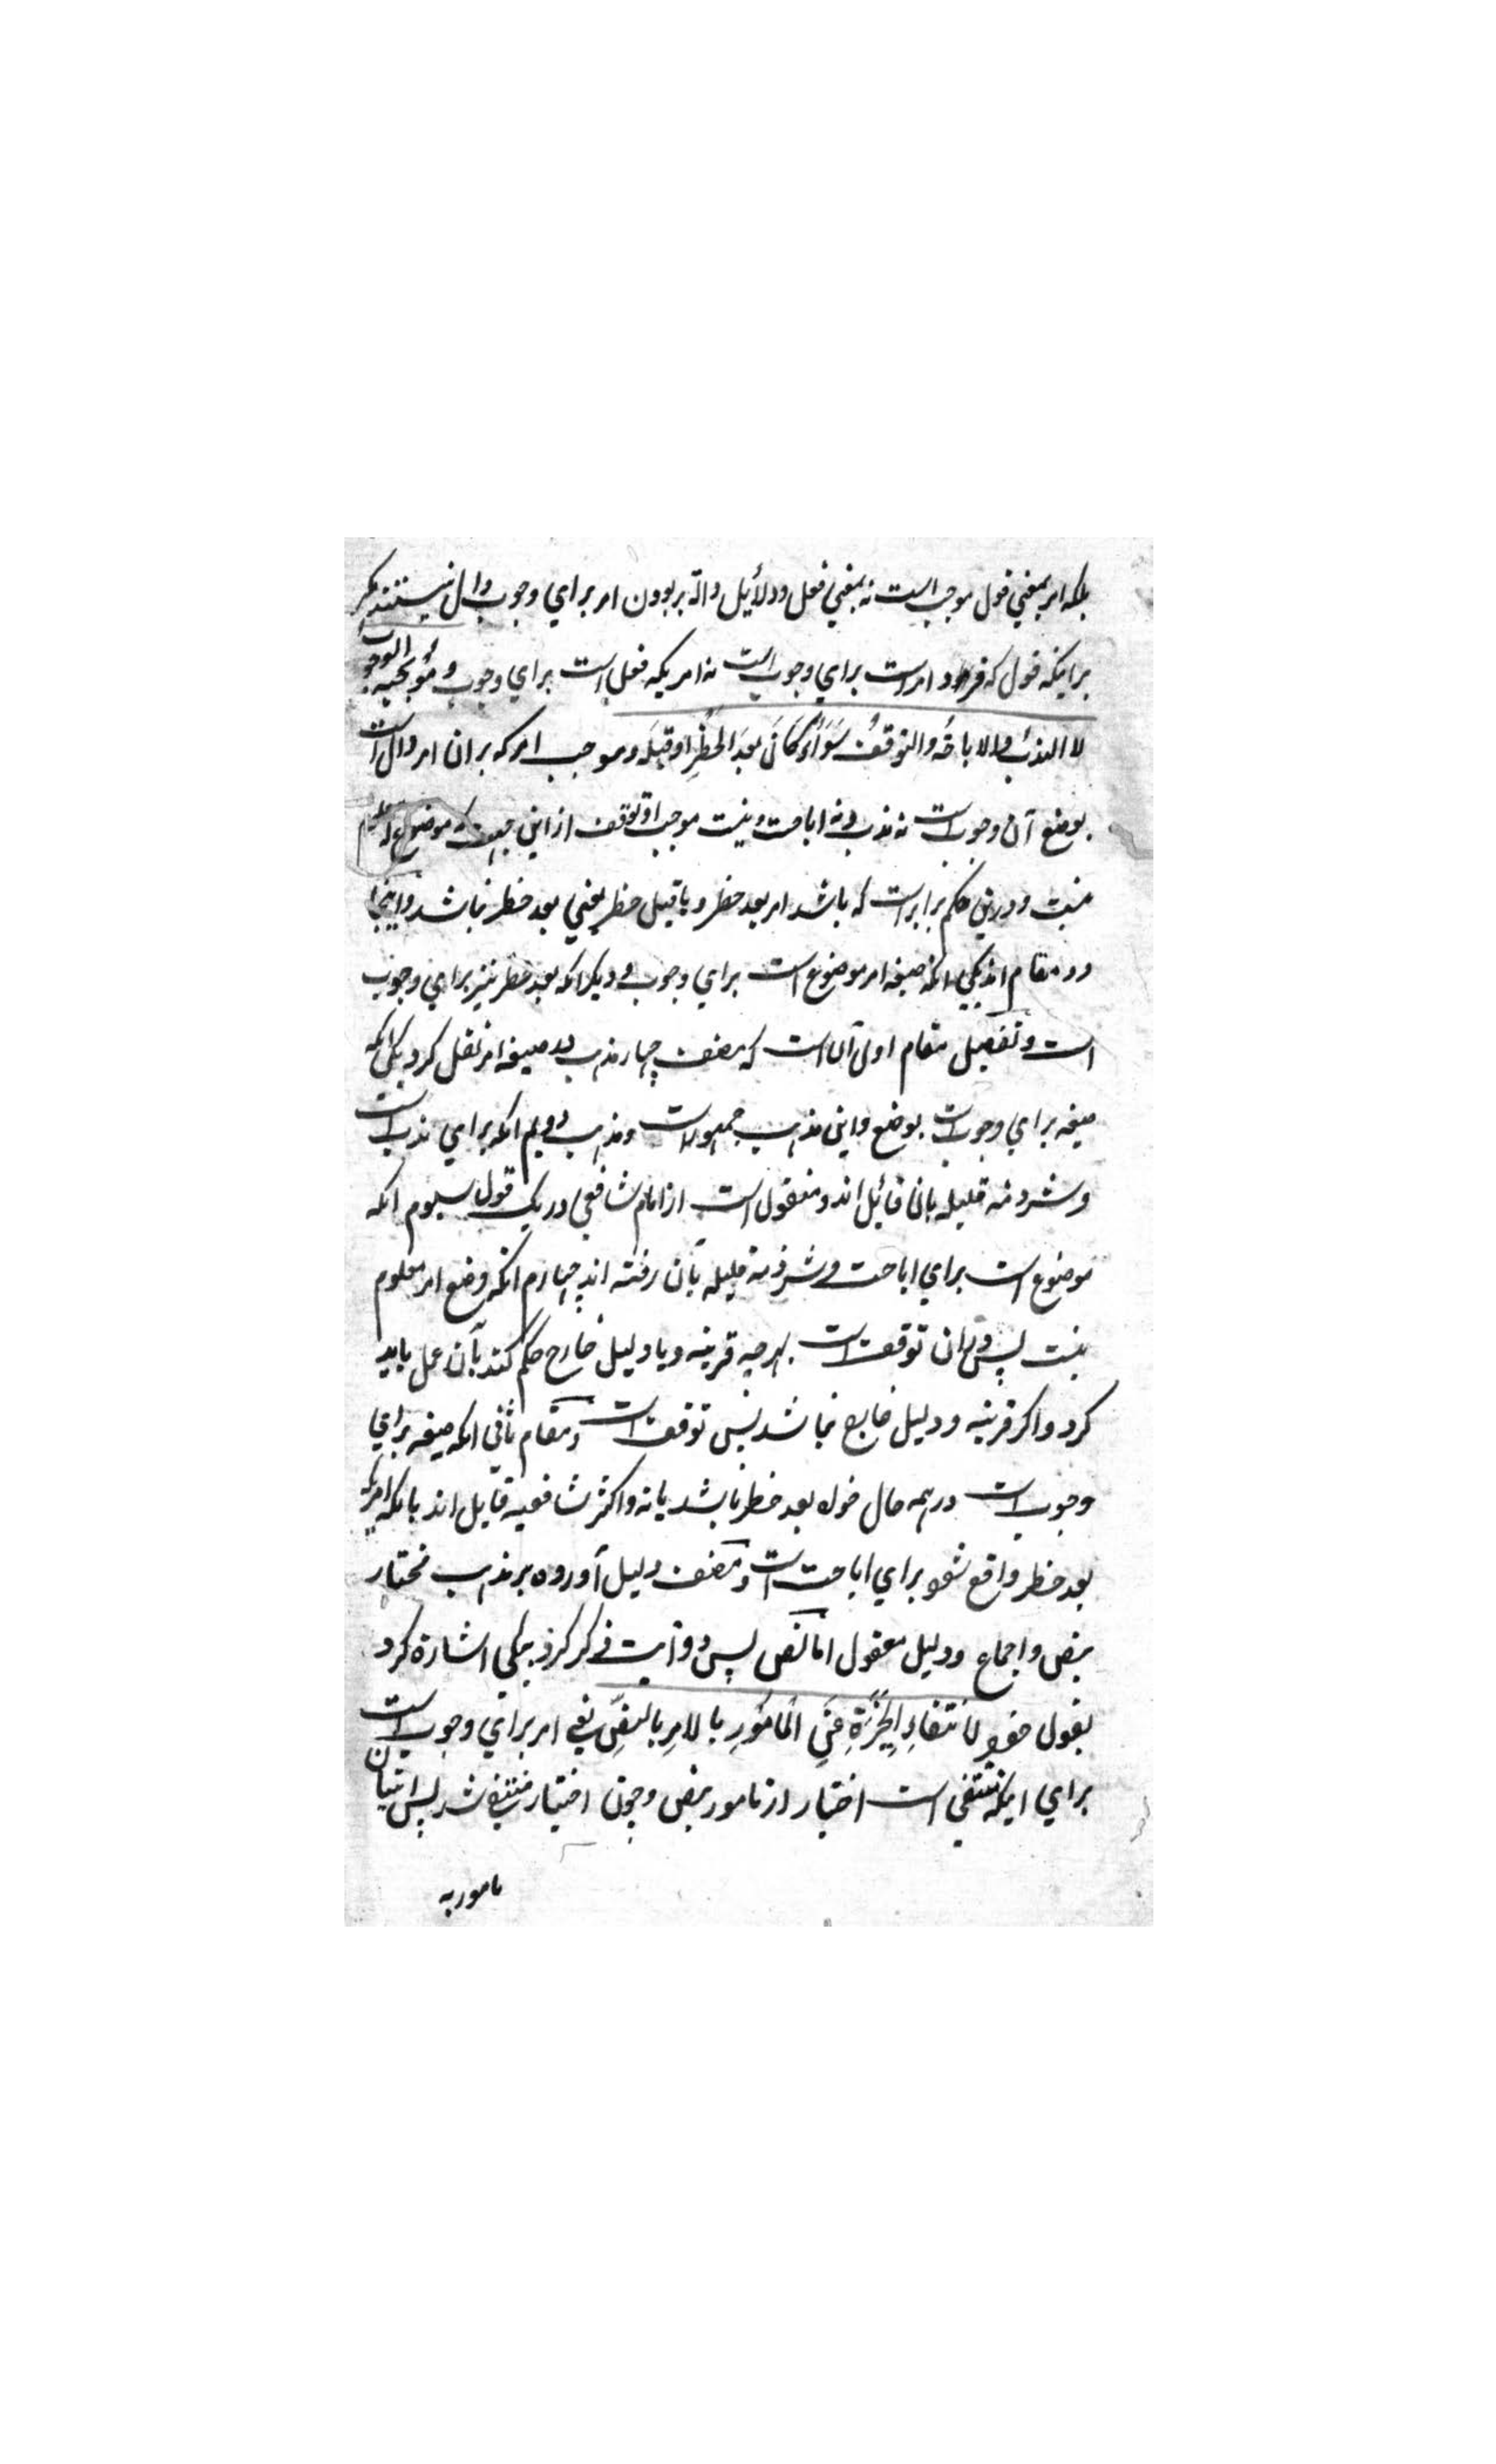 بلکه امر بمعني قول موجب است نه بمعني فعل ودلائل دالّه بربودن امر براي وجوب دال نیستند مکر
برانیکه قول که فرد امر است براي وجوب است نه امریکه فعل است براي وجوب و مُوجَبُهُ الوجوبُ
لا الندبُ والاباحَهُ والتوقفُ سَوَاءٌ کَانَ بعدَ الحَظْرِ اوقبلَه وموجب امر که بران امر دال است
بوضع آن وجوب است نه ندب ونه اباحت ونیست موجب او توقف از این جهت که موضوع له معلوم
نیست ودرین حکم برابر است که باشد امر بعد حظر ویا قبل حظر یعني بعد حظر نباشد واینجا
دو مقام اند یکي انکه صیغه امر موضوع است براي وجوب و دیکر انکه بعد حظر نیز براي وجوب
است وتفصیل مقام اول آن است که مصنف چهار مذهب در صیغه امر نقل کرد یکي انکه
صیغه براي وجوب است بوضع واین مذهب جمهور است ومذهب دویم انکه براي ندب است
وشرذمه قلیله بان قائل اند ومنقول است از امام شافعي در یک قول سیوم انکه
موضوع است براي اباحت وشرذمة قلیله بآن رفته اند چهارم انکه وضع امر معلوم
نیست پس دران توقف است بهرچه قرینه ویا دلیل خارج حکم کند بآن عمل باید
کرد واکر قرینه ودلیل خارج نباشد پس توقف است ومقام ثاني انکه صیغه براي
وجوب است در همه حال خواه بعد حظر باشد یا نه واکثر شافعیه قایل اند بانکه امریکه
بعد حظر واقع شود براي اباحت است ومصنف دلیل آورده بر مذهب مختار
بنص واجماع ودلیل معقول امّا نص پس دو آیت ذکر کرد بیکي اشارة کرد
بقول خود لانتفاءِ الخِیَرَةِ عَنِ المأمُورِ بالامرِ بالنصِّ یعني امر براي وجوب است
براي اینکه منتفي است اختیار از مامور بنص وچون اختیار منتفي شد پس اتیان
مامور به